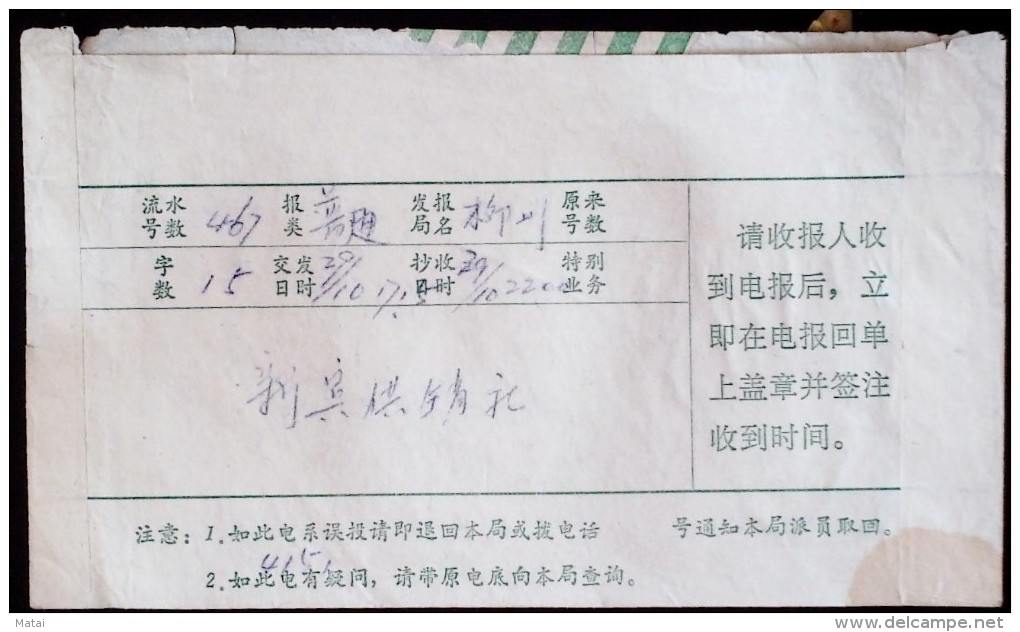 流水号数 467 报类 普通 发报局名 柳川 原来号数
字数 15 交发日时 29/10 17.5 抄收日时 29/10 2200 特别业务
新宾供销社
请收报人收
到电报后，立
即在电报回单
上盖章并签注
收到时间。
注意：1.如此电系误投请即退回本局或拨电话 号通知本局派员取回。
415
2.如此电有疑问，请带原电底向本局查询。
Matai
delcampe.net